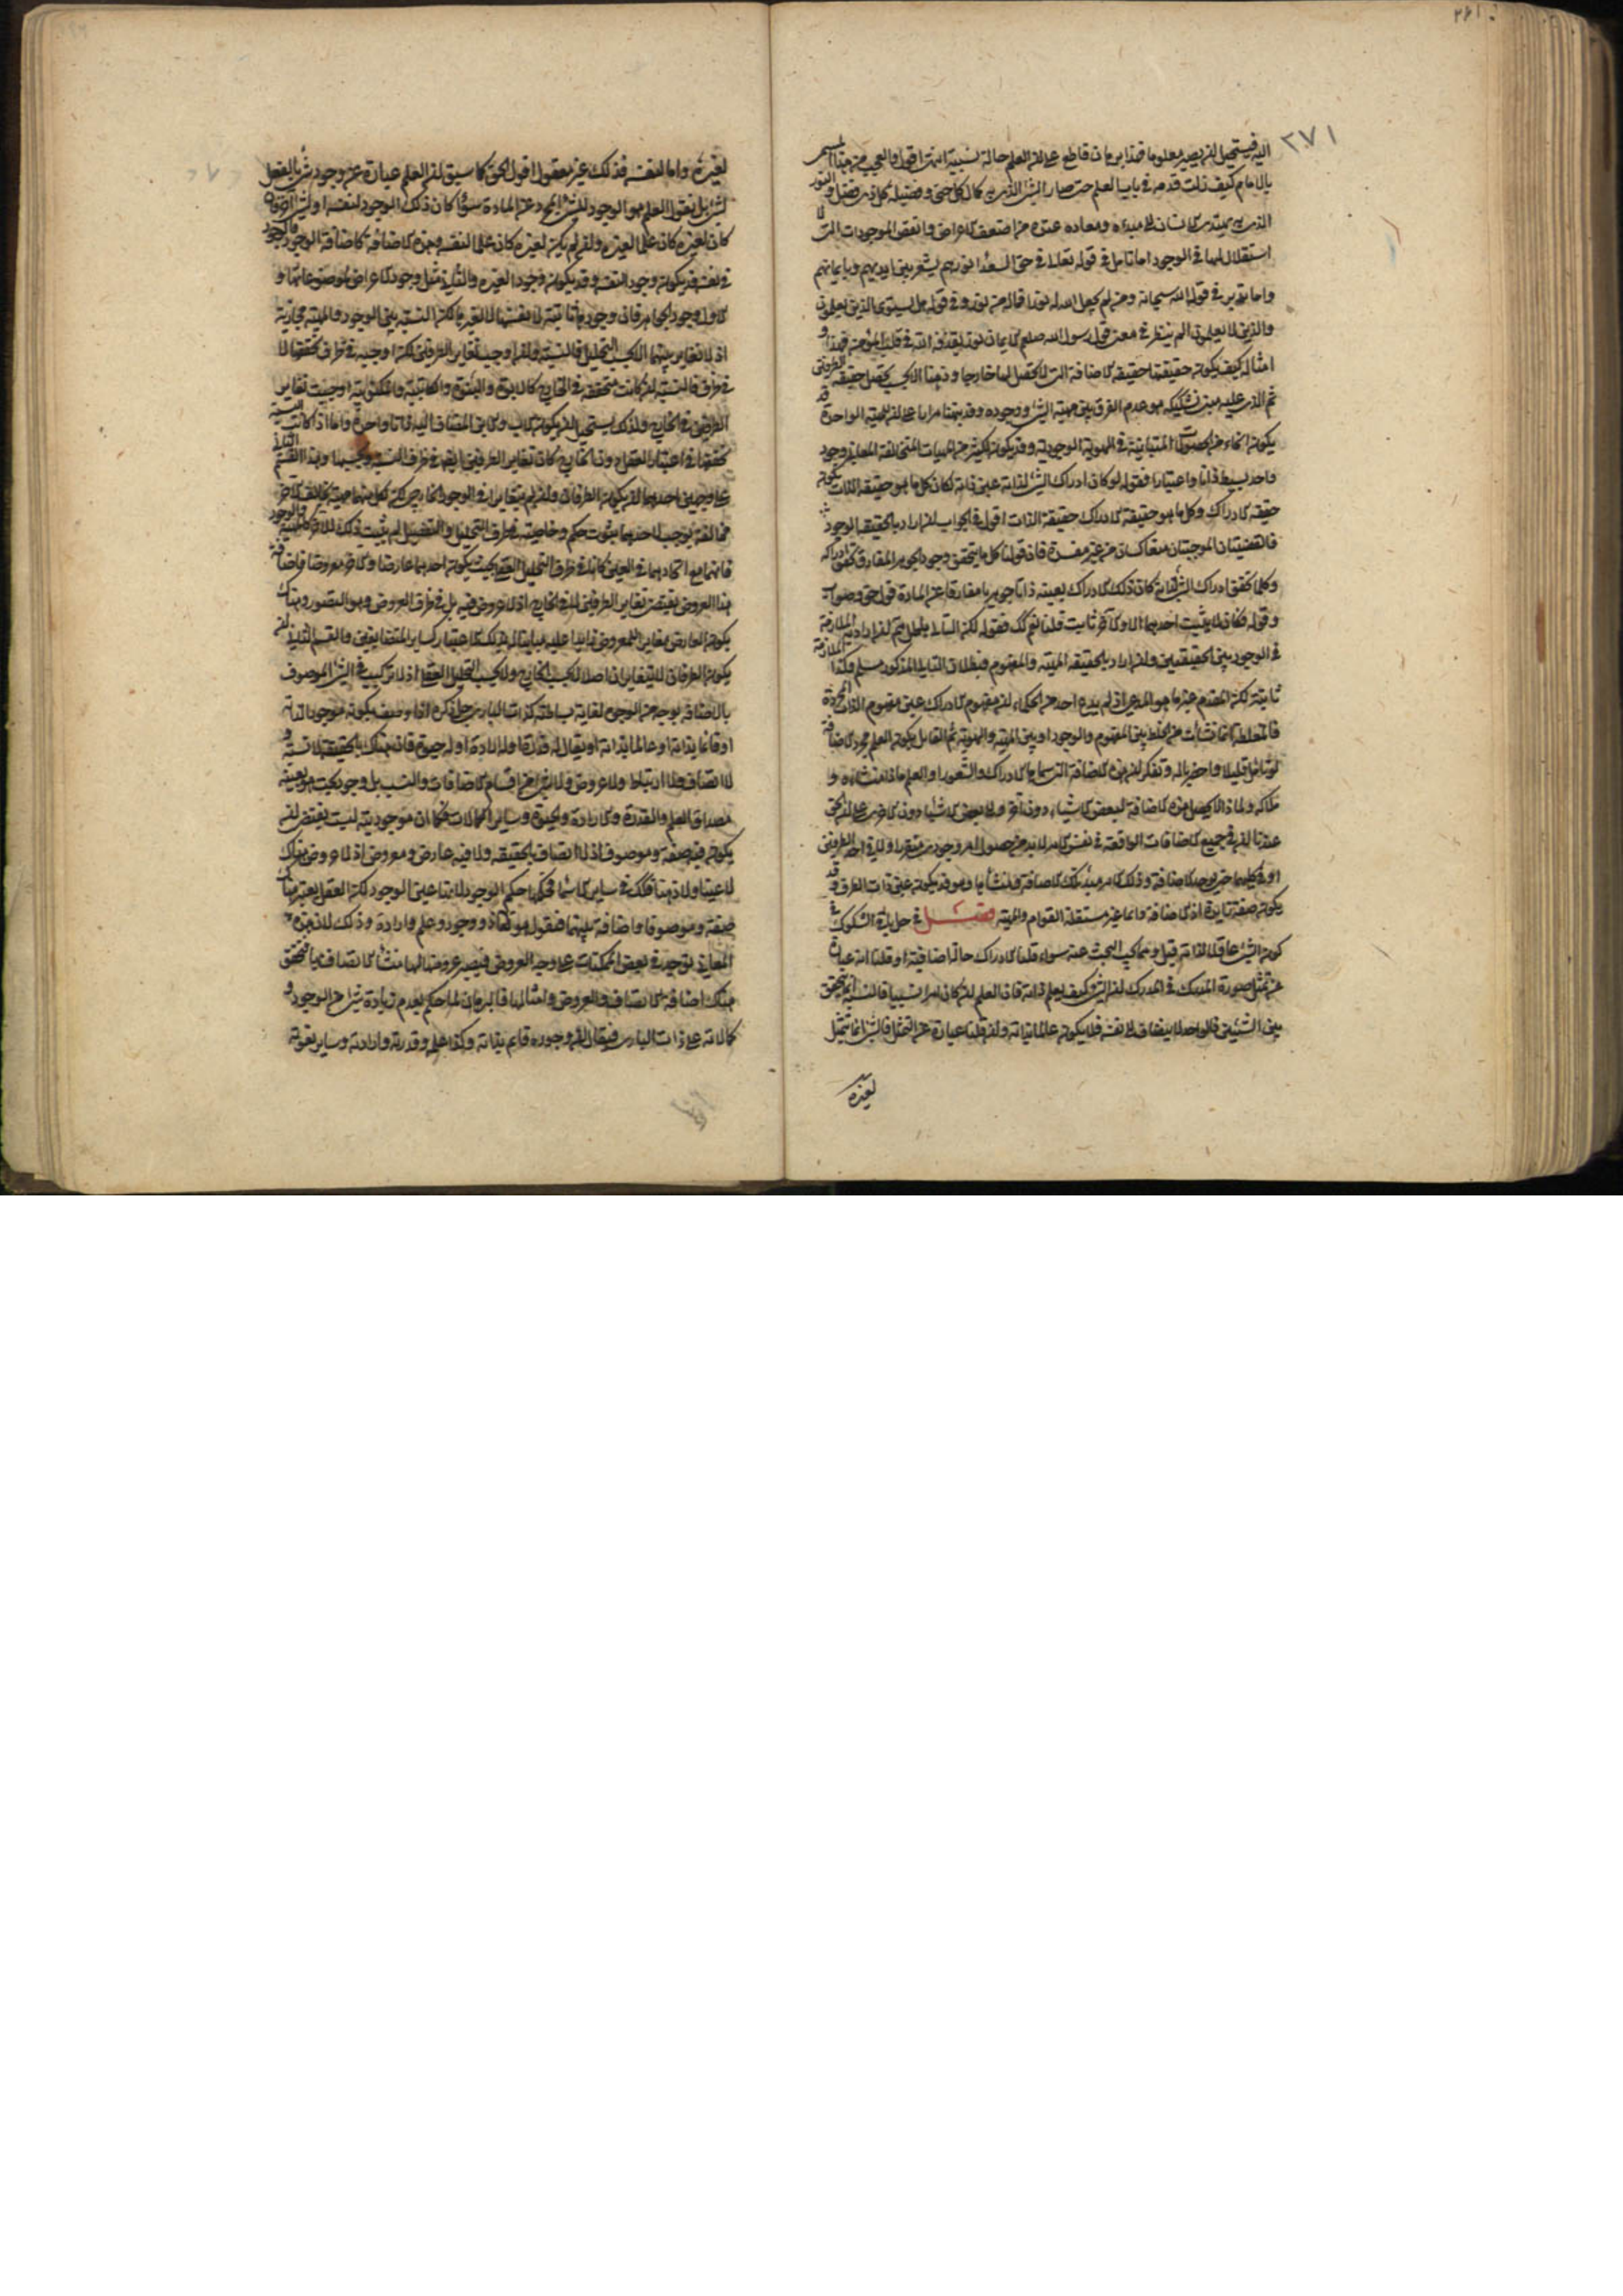 ٢٧١
اليه فيستحيل ان يصير معلوما فهذا برهان قاطع على ان العلم حالة نسبية انتهى اقول والعجب من هذا المسمى
بالامام كيف زلت قدمه في باب العلم حتى صار الشئ الذي به كمال كل حي وفضيلة كل ذي فضل والنور
الذي به يهتدي الانسان الى مبدءه ومعاده عنده من اضعف الاعراض وانقص الموجودات التي لا
استقلال لها في الوجود اما تامل في قوله تعالى في حق السعداء نورهم يسعى بين ايديهم وبايمانهم
واما تدبر في قول الله سبحانه ومن لم يجعل الله له نورا فما له من نور وفي قوله هل يستوي الذين يعلمون
والذين لا يعلمون الم ينظر في معنى قول رسول الله صلعم الايمان نور يقذفه الله في قلب المؤمن فهذا و
امثاله كيف يكون حقيقتها حقيقة الاضافة التي لا تحصل لها خارجا وذهنا الا بحسب تحصل حقيقة الطرفين
ثم الذي عليه مبنى تشكيكه هو عدم الفرق بين مهية الشئ ووجوده وقد بينا مرارا على ان المهية الواحدة قد
يكون انحاء من الحصولات المتباينة في الهوية الوجودية وقد يكون لكثير من المهيات المتخالفة المعاني وجود
واحد بسيط ذاتا واعتبارا فقوله لو كان ادراك الشئ لذاته عين ذاته لكان كل ما هو حقيقة الذات يكون
حقيقة الادراك وكل ما هو حقيقة الادراك حقيقة الذات اقول في الجواب ان اراد بالحقيقة الوجود
فالقضيتان الموجبتان منعكستان من غير مفسدة فان قولنا كلما يتحقق وجود الجوهر المفارق تحقق ادراكه
وكلما تحقق ادراك الشئ لذاته كان ذلك الادراك بعينه ذاتا جوهريا مفارقا عن المادة قول حق وصواب
وقوله فكان لا يثبت احدهما الا والآخر ثابت قلنا نعم كك فقوله لكن التالي باطل ثم ان اراد به الملازمة
في الوجود بين الحقيقتين وان اراد بالحقيقة المهية والمفهوم فبطلان التالي المذكور مسلم وكذا الملازمة
ثابتة لكن المقدم غير ما هو المدعى اذ لم يدع احد من الحكماء ان مفهوم الادراك عين مفهوم الذات المجردة
فالمغلطة انما نشأت من الخلط بين المفهوم والوجود او بين المهية والهوية ثم القائل بكون العلم مجرد اضافة
لو تامل قليلا واحضر باله وتفكر ان هذه الاضافة التي سماها الادراك والشعور او العلم ماذا منشاءه و
ملاكه ولماذا لا يحصل هذه الاضافة لبعض الاشياء دون آخر والى بعض الاشياء دون الاخرى على ان الحق
عندنا ان في جميع الاضافات الواقعة في نفس الامر لا بد من حصول امر وجودي متقرر اولا في احد الطرفين
او في كليهما حتى يوجد الاضافة وذلك الامر مبدء تلك الاضافة ومنشأها وهو قد يكون عين ذات الطرف وقد
يكون صفة زايدة اذ الاضافة دائما غير مستقلة القوام والمهية فصل في حل باقي الشكوك في
كون الشئ عاقلا لذاته قيل ومما يجب البحث عنه سواء قلنا الادراك حالة اضافية او قلنا انه عبارة
عن تمثل صورة المدرك في المدرك ان الشئ كيف يعلم ذاته فان العلم ان كان امرا نسبيا فالنسبة انما يتحقق
بين الشيئين فالواحد لا يضاف الى نفسه فلا يكون عالما بذاته وان قلنا عبارة عن التمثل فالشئ انما يتمثل
لغيره
لغيره واما لنفسه فذلك غير معقول اقول الحق كما سبق ان العلم عبارة عن وجود شئ بالفعل
لشئ بل نقول العلم هو الوجود للشئ المجرد عن المادة سواء كان ذلك الوجود لنفسه او لشئ آخر فان
كان لغيره كان علما لغيره وان لم يكن لغيره كان علما لنفسه وهذه الاضافة كاضافة الوجود فالوجود
في نفسه قد يكون وجودا لنفسه وقد يكون وجودا لغيره والثاني مثل وجود الاعراض لموضوعاتها و
الاول وجود الجواهر فان وجودها ثابتة لانفسها لا لغيرها لكن النسبة بين الوجود والمهية مجازية
اذ لا تغاير بينهما الا بحسب التحليل فالنسبة وان اوجبت تغاير الطرفين لكن اوجبه في ظرف تحققها لا
في ظرف آخر فالنسبة ان كانت متحققة في الخارج كالابوة والبنوة والكاتبية والمكتوبية اوجبت تغاير
الطرفين في الخارج ولذلك يستحيل ان يكون الاب والابن المضاف اليه ذاتا واحدة واما اذا كانت النسبة
تحققها في اعتبار العقل دون الخارج كان تغاير الطرفين ايضا في ظرف النسبة وبحسبها وهذا القسم الثاني
على وجهين احدهما ان يكون الطرفان وان لم يتغايرا في الوجود الخارجي لكن لكل منهما مهية يخالف الآخر
مخالفة يوجب لاحدهما ثبوت حكم وخاصية في ظرف التحليل والتفصيل لم يثبت ذلك للآخر كالمهية والوجود
فانهما مع اتحادهما في العين كانا في ظرف التحليل العقلي بحيث يكون احدهما عارضا والآخر معروضا فاضافة
هذا العروض يقتضي تغاير الطرفين لا في الخارج اذ لا عروض فيه بل في ظرف العروض وهو التصور وهناك
يكون العارض مغايرا للمعروض زايدا عليه مباينا له بذلك الاعتبار كساير المتضايفين والقسم الثاني ان
يكون الطرفان لا يتغايران اصلا لا بحسب الخارج ولا بحسب التحليل العقلي اذ لا تركيب في الشئ الموصوف
بالاضافة بوجه من الوجوه لغاية بساطته كذات الباري جل ذكره اذا وصف بكونه موجودا لذاته
او قائما بذاته او عالما بذاته او يقال له قدرة او له ارادة او له حيوة فان هناك بالحقيقة لا نسبة و
لا اتصاف ولا ارتباط ولا عروض ولا شئ من اقسام الاضافات والنسب بل وجود بحت هو بعينه
مصداق العلم والقدرة والارادة والحيوة وساير الكمالات فكما ان موجوديته ليست يقتضي ان
يكون فيه صفة وموصوف اذ لا اتصاف بالحقيقة ولا فيه عارض ومعروض اذ لا عروض هناك
لا عينا ولا ذهنا فكك في ساير الاسماء فحكمها حكم الوجود لانها عين الوجود لكن العقل يعتبر هناك
صفة وموصوفا واضافة بينهما فنقول هو تعالى ذو وجود وعلم وارادة وذلك لان هذه
المعاني توجد في بعض الممكنات على وجه العروض فيصير عروضها لها منشأ الاتصاف بها فيتحقق
هناك اضافة الاتصاف والعروض وامثالها فالبرهان لما حكم بعدم زيادة شئ من الوجود و
كمالاته على ذات الباري فيقال ان وجوده قايم بذاته وكذا علمه وقدرته وارادته وساير نعوته